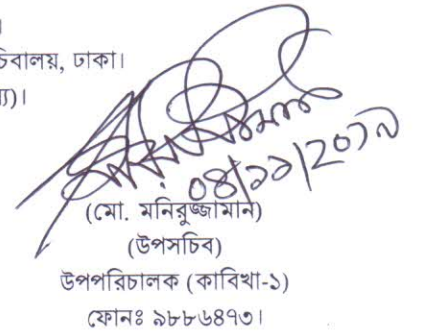 ।
চিবালয়, ঢাকা।
০৪/১১/২০১৯
(মো. মনিরুজ্জামান)
(উপসচিব)
উপপরিচালক (কাবিখা-১)
ফোনঃ ৯৮৮৬৪৭৩।